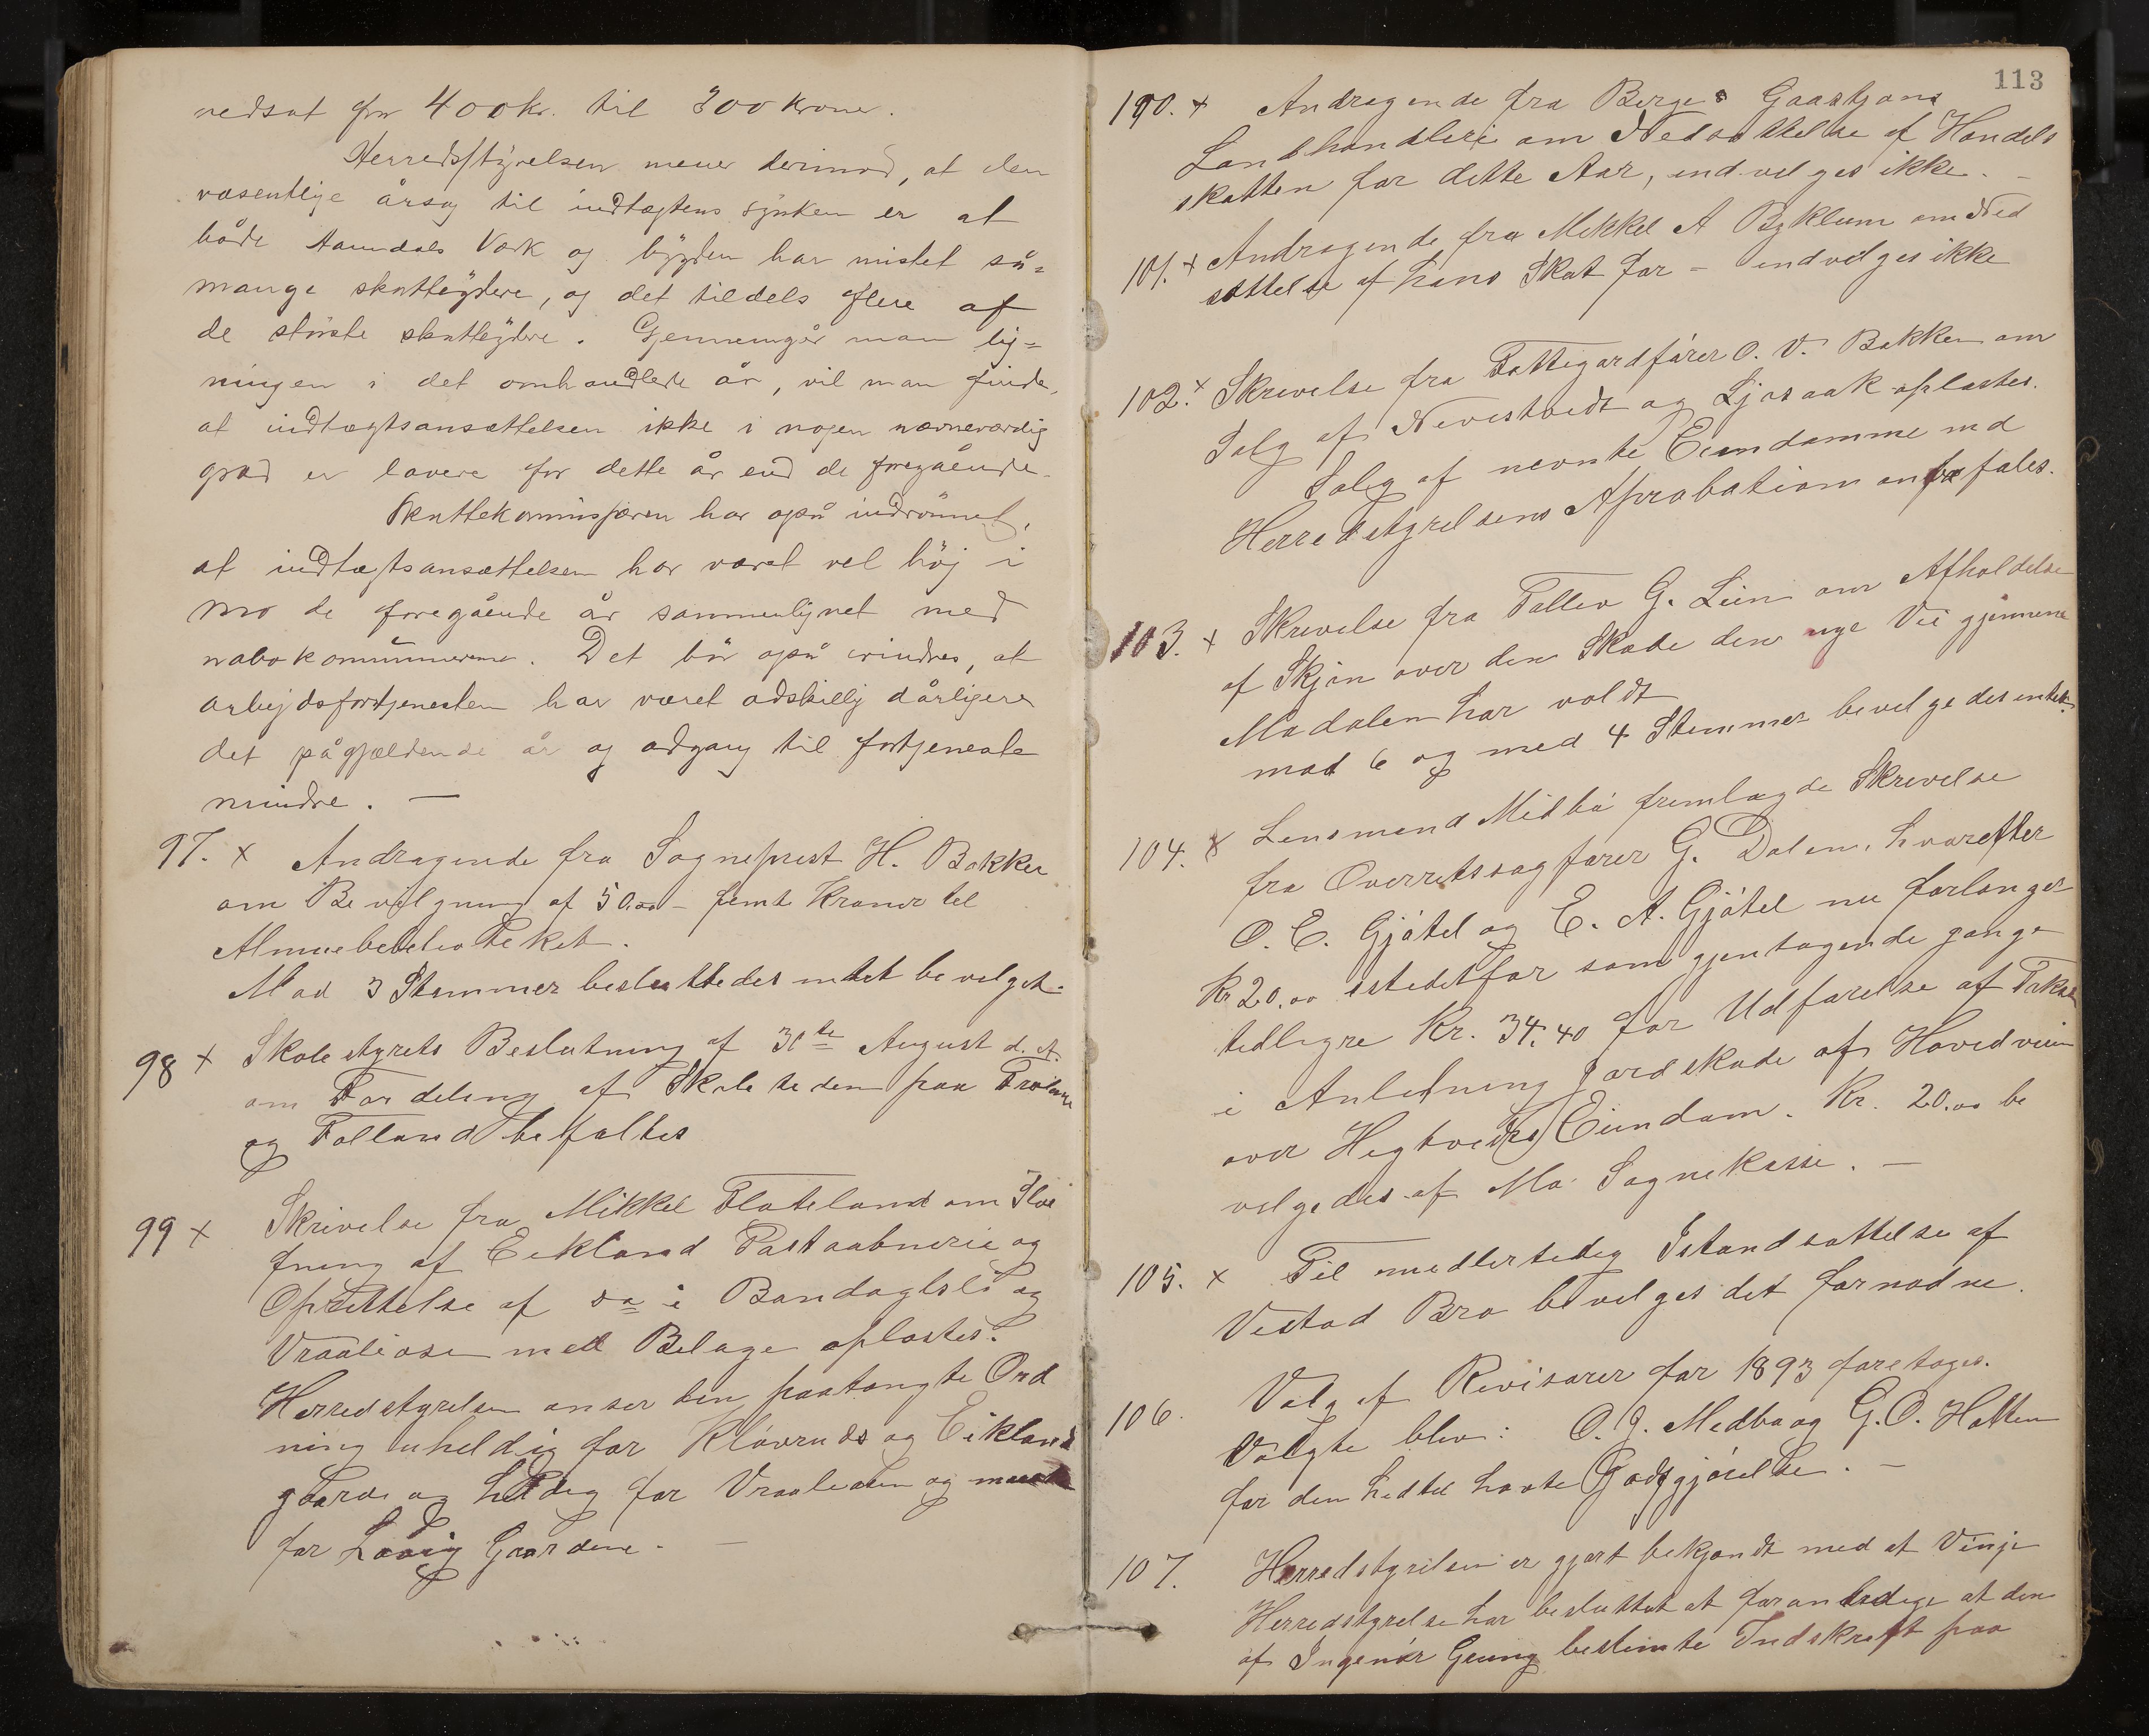 nedsat fra 400 kr. til 300 kroner.
Herredsstyrelsen mener derimod, at den
væsentlige årsag til indtægtens synken er at
både Åmdals Værk og bygden har mistet så=
mange skatteydere, og det tildels flere af
de største skatteydere. Gjennemgår man lig=
ningen i det omhandlede år, vil man finde,
at indtægtsansættelsen ikke i nogen nævneværdig
grad er lavere for dette år end de foregående.
Skattekommissæren har også indrømmet,
at indtægtsansættelsen har været vel høj i
Mo de foregående år sammenlignet med
nabokommunerne. Det bør også erindres, at
arbejdsfortjenesten har været adskillig dårligere
det pågjældende år og adgang til fortjeneste
mindre. —
97. x Andragende fra Sogneprest H. Bakken
om Bevilgning af 50.00 - femti Kroner til
Almuebibliotheket.
Mod 3 Stemmer besluttedes intet bevilget.
98 x Skolestyrets Beslutning af 31te August d. A.
om Fordeling af Skoletiden paa
og Folland befaltes
99 x Skrivelse fra Mikkel Flateland om Sløi
fning af Eikland Postaabnerie og
Oprettelse af do i Bandagsli og
Vraaliosen med Bilage oplæstes.
Herredstyrelsen anser den paatængte Ord
ning uheldig for Kløvruds og Eiklands
gaarde og heldig for Vraaliosen og
for Gaardene. —
113
100. x Andragende fra Berge & Gaastjøns
Landhandleri om Nedsættelse af Handels
skatten for dette Aar, indvilges ikke. —
101. x Andragende fra Mikkel A Byklum om Ned
sættelse af hans Skat for - indvilges ikke
102. x Skrivelse fra Fattegardfører O. V. Bakken om
Salg af Nevestvedt og Ljosaak oplæstes.
Salg af nevnte Eiendomme med
Herredstyrelsens Aprobation anbefales.
103. x Skrivelse fra Tallev G. Lien om Afholdelse
af Skjøn over den Skade den nye Vei gjennem
Modalen har voldt
mod 6 og med 4 Stemmer bevilgedes intet.
104. x Lensmand Midbø fremlagde Skrivelse
fra Overretssagfører G. Dalen, hvorefter
O. E. Gjøtil og E. A. Gjøtil nu forlanger
Kr 20.00 istedetfor som gjentagende gange
tidligere Kr. 34.40 for Udførelse af Takst
i Anledning Jordskade af Hovedveien
over Hegtveits Eiendom. Kr. 20.00 be
vilgedes af Mo Sognekasse. —
105. x Til midlertidig Istandsættelse af
Vestad Bro bevilges det fornødne.
106. Valg af Revisorer for 1893 foretoges.
Valgte blev: O. J. Medbø og G. O. Hatten
for den hidtil havte Godtgjørelse. —
107. Herredstyrelsen er gjort bekjendt med at Vinje
Herredstyrelse har besluttet at foranledige at den
af Ingeniør bestemte Indskrift paa